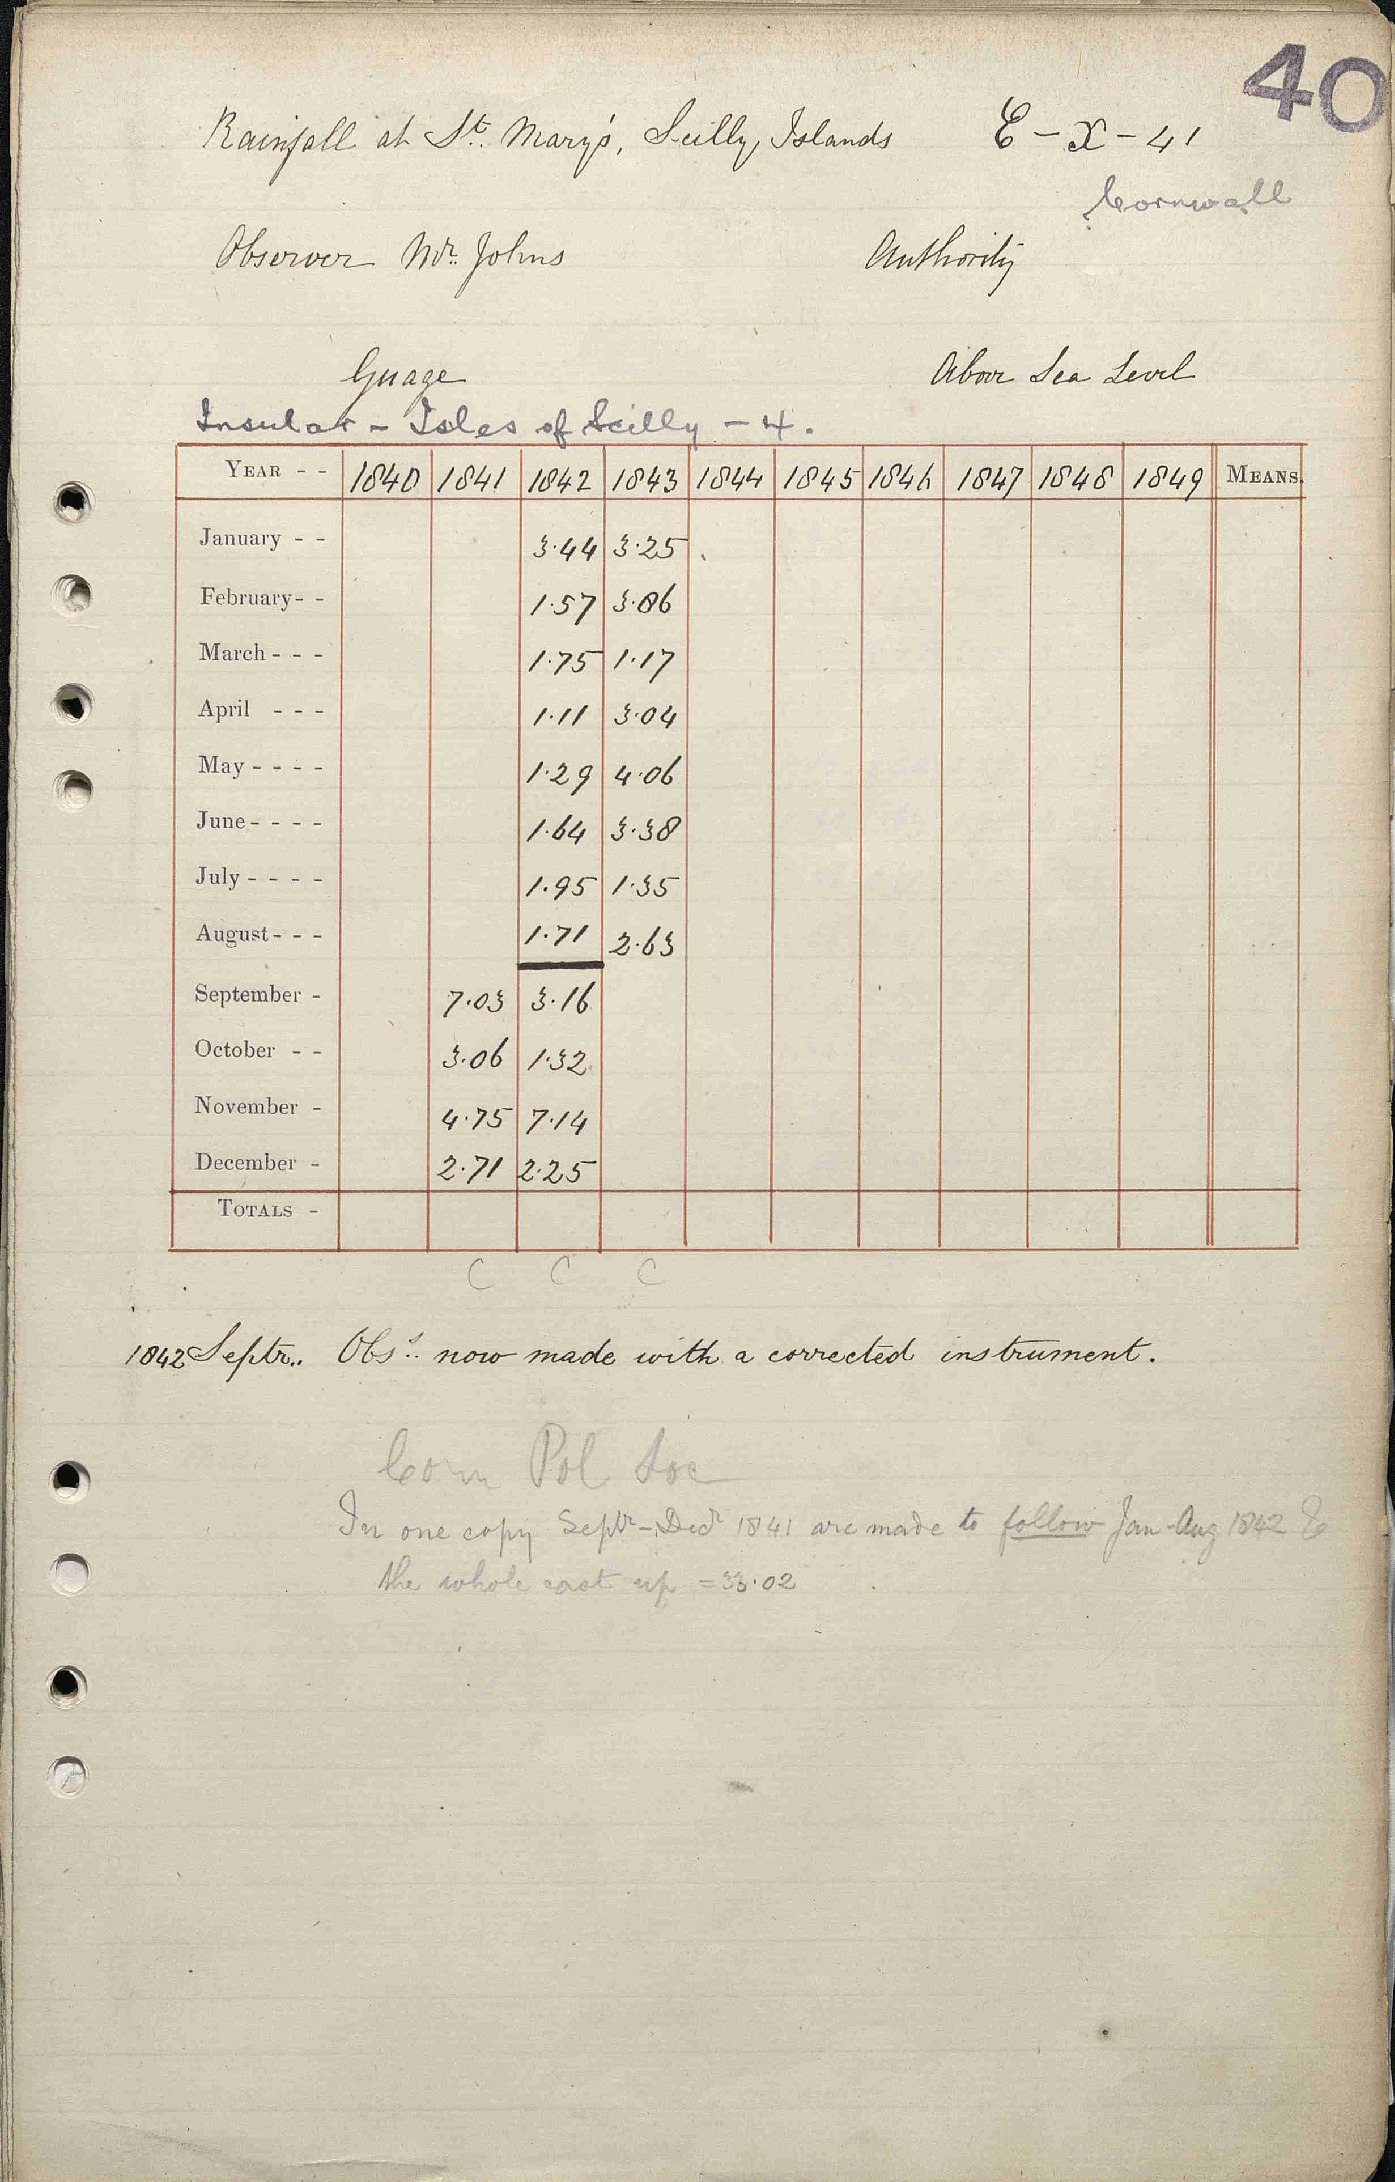 40
Rainfall at St. Mary's, Scilly Islands E - X - 41
Cornwall
Observer Mr. Johns Authority
Guage Above Sea Level
Insular - Isles of Scilly - 4.
YEAR - - 1840 1841 1842 1843 1844 1845 1846 1847 1848 1849 MEANS.
January - - 3.44 3.25
February - - 1.57 3.86
March - - - 1.75 1.17
April - - - 1.11 3.04
May - - - - 1.29 4.06
June - - - - 1.64 3.38
July - - - - 1.95 1.35
August - - - 1.71 2.63
September - 7.03 3.16
October - - 3.06 1.32
November - 4.75 7.14
December - 2.71 2.25
TOTALS -
C C C
1842 Septr.. Obs.s now made with a corrected instrument.
Corn Pol Soc
In one copy Septr - Decr 1841 are made to follow Jan - Aug 1842 &
the whole cast up = 33.02